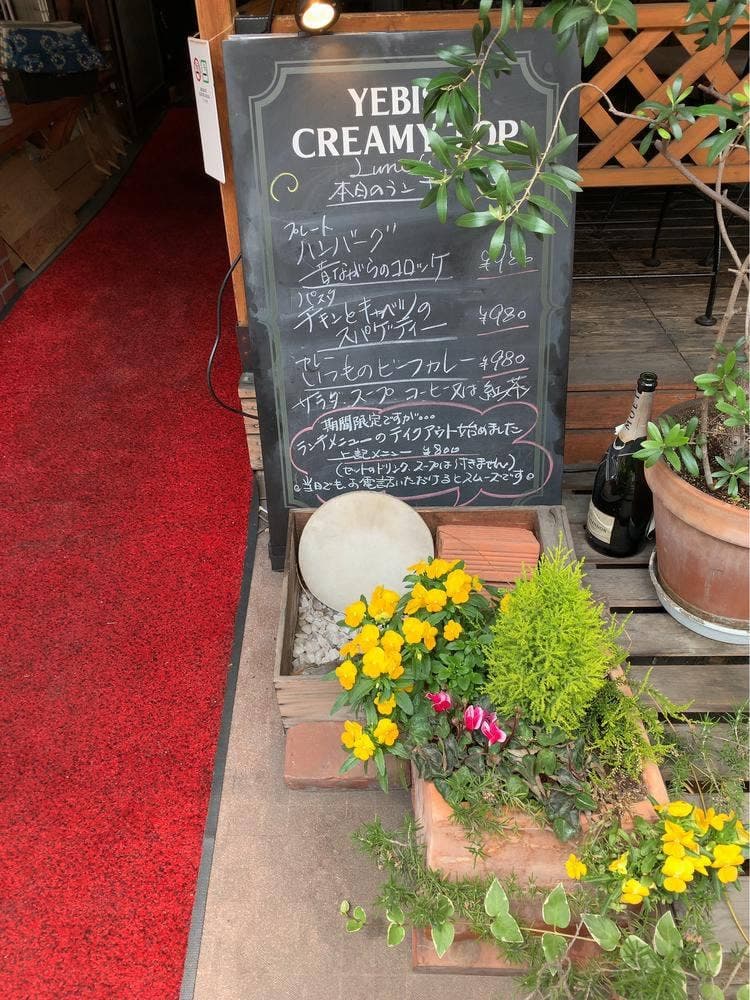 YEBIS
CREAMY TOP
Lunch
本日のランチ
プレート
ハンバーグ
昔ながらのコロッケ ¥980
パスタ
チキンとキャベツの
スパゲティー ¥980
カレー
いつものビーフカレー ¥980
サラダ、スープ、コーヒー又は紅茶
期間限定ですが。。。
ランチメニューのテイクアウト始めました
上記メニュー ¥800
(セットのドリンク、スープは付きません)
。当日でも、お電話いただけるとスムーズです。